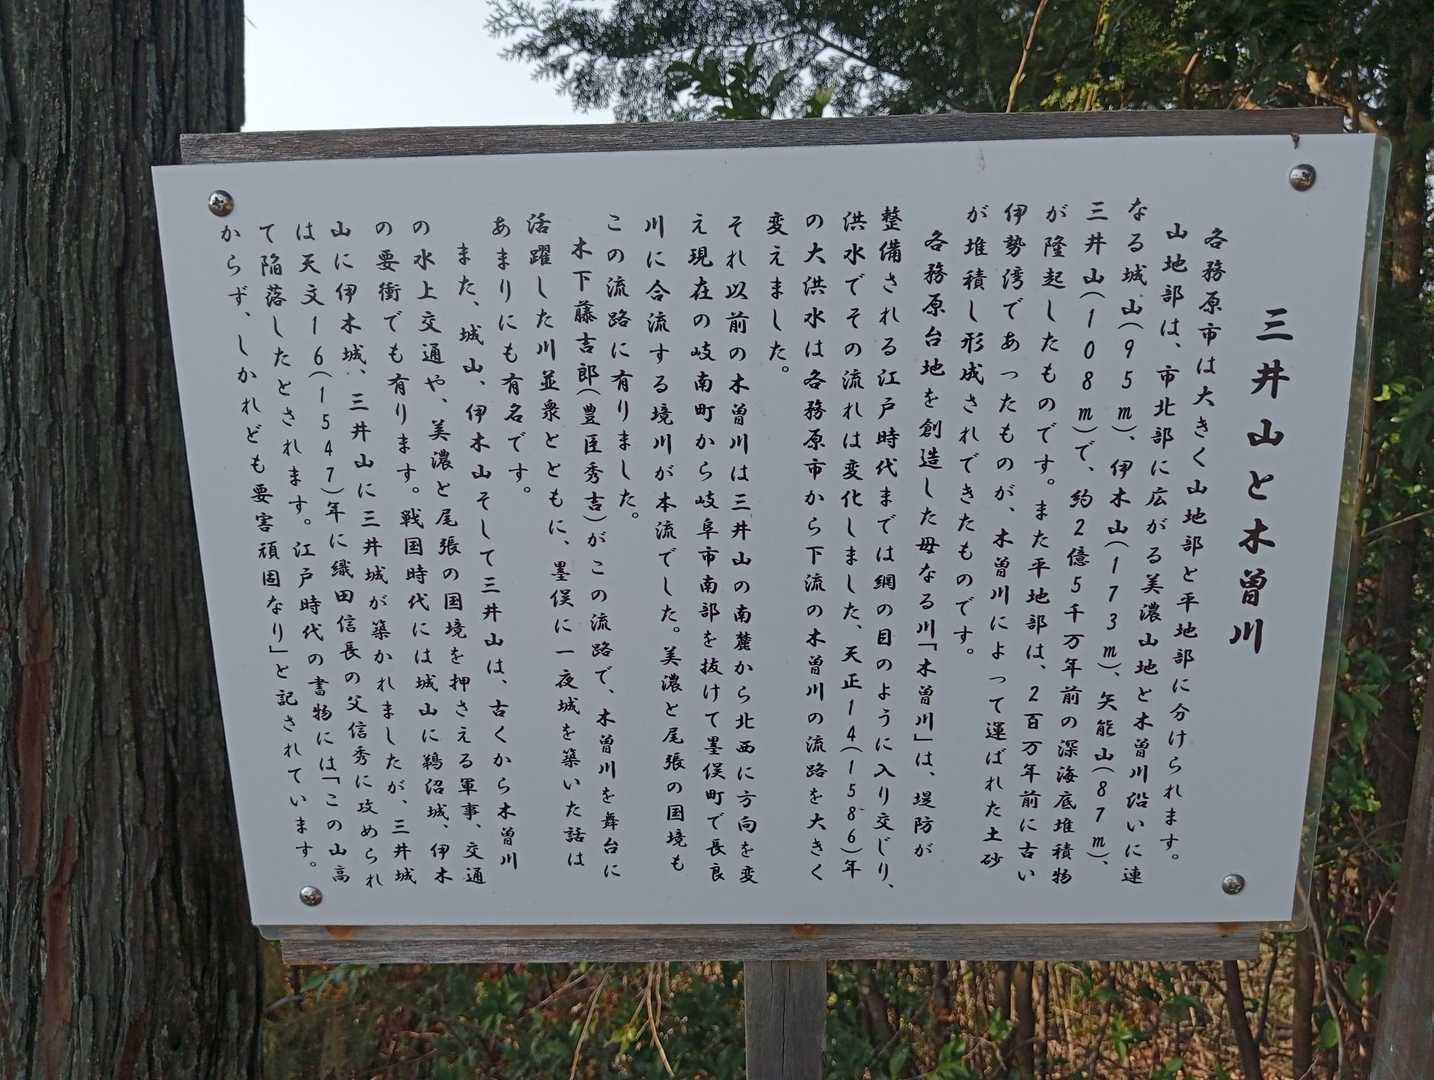 三井山と木曽川
各務原市は大きく山地部と平地部に分けられます。
山地部は、市北部に広がる美濃山地と木曽川沿いに連
なる城山(95m)、伊木山(173m)、矢熊山(87m)、
三井山(108m)で、約2億5千万年前の深海底堆積物
が隆起したものです。また平地部は、2百万年前に古い
伊勢湾であったものが、木曽川によって運ばれた土砂
が堆積し形成されできたものです。
各務原台地を創造した母なる川「木曽川」は、堤防が
整備される江戸時代までは網の目のように入り交じり、
洪水でその流れは変化しました、天正14(1586)年
の大洪水は各務原市から下流の木曽川の流路を大きく
変えました。
それ以前の木曽川は三井山の南麓から北西に方向を変
え現在の岐南町から岐阜市南部を抜けて墨俣町で長良
川に合流する境川が本流でした。美濃と尾張の国境も
この流路に有りました。
木下藤吉郎(豊臣秀吉)がこの流路で、木曽川を舞台に
活躍した川並衆とともに、墨俣に一夜城を築いた話は
あまりにも有名です。
また、城山、伊木山そして三井山は、古くから木曽川
の水上交通や、美濃と尾張の国境を押さえる軍事、交通
の要衝でも有ります。戦国時代には城山に鵜沼城、伊木
山に伊木城、三井山に三井城が築かれましたが、三井城
は天文16(1547)年に織田信長の父信秀に攻められ
て陥落したとされます。江戸時代の書物には「この山高
からず、しかれども要害頑固なり」と記されています。